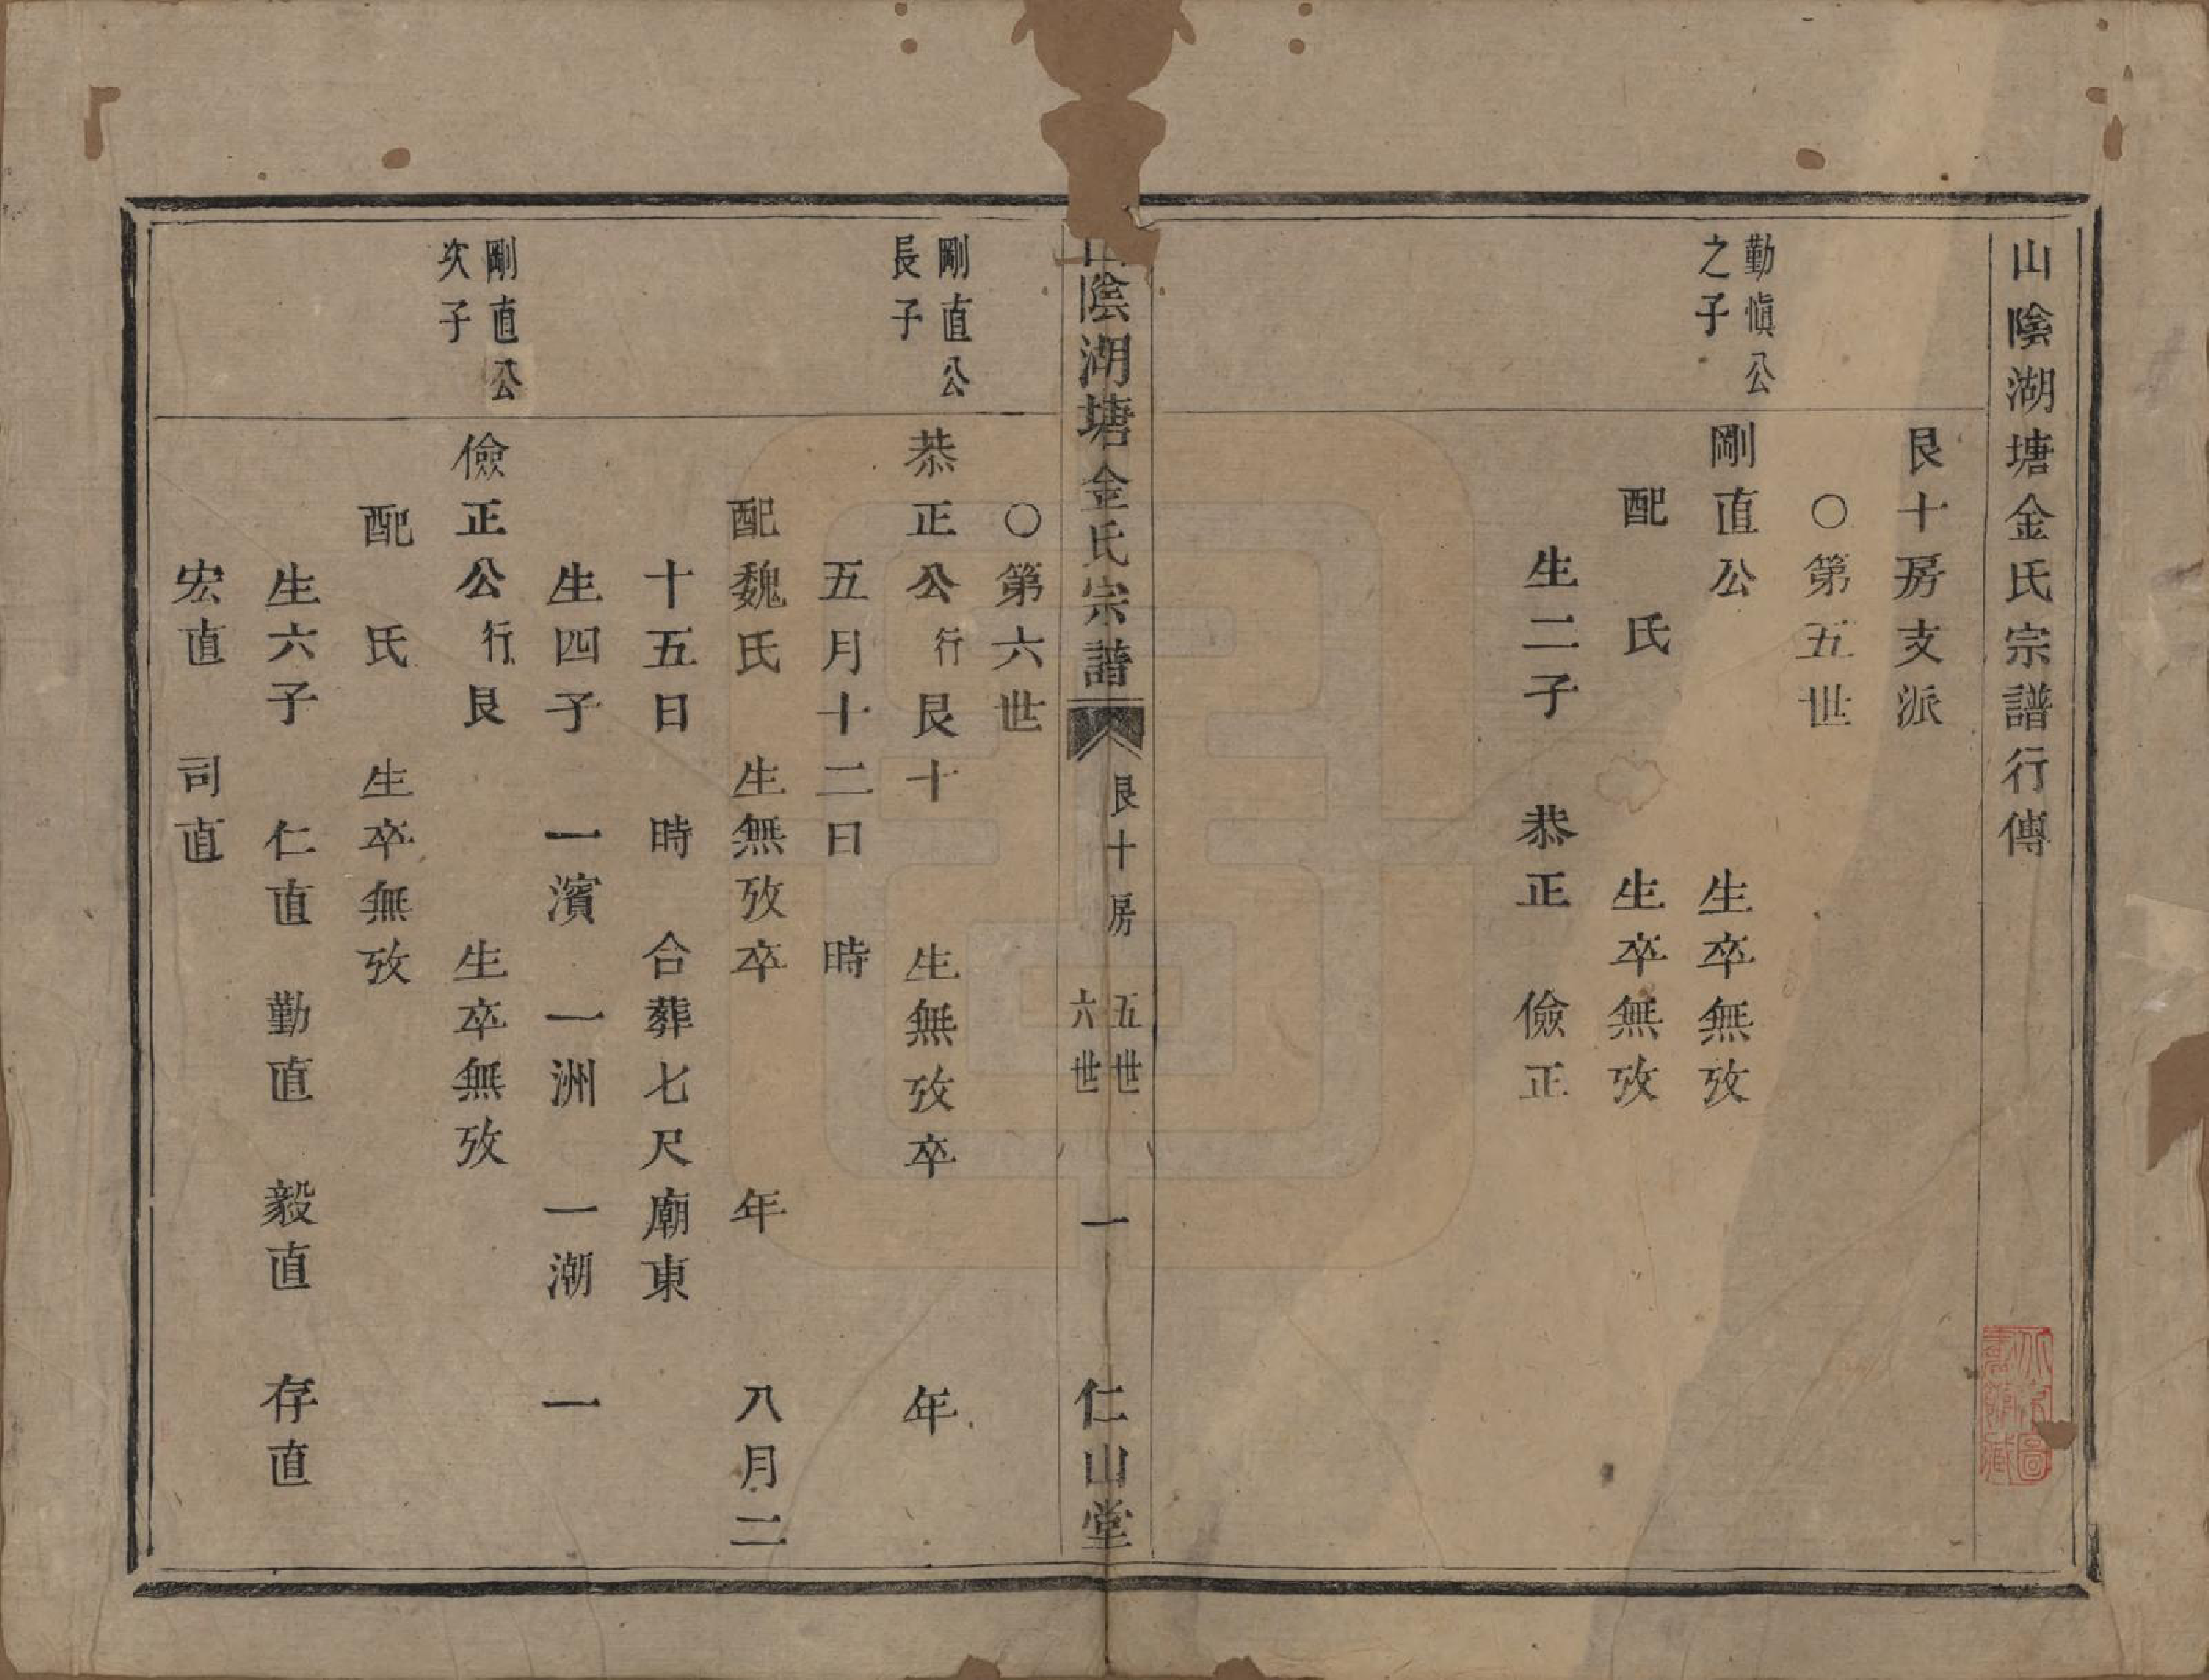 山陰湖塘金氏宗譜行傳
艮十房支派
○第五世
勤慎公
之子
剛直公　生卒無攷
配　氏　生卒無攷
生二子　恭正　儉正
山陰湖塘金氏宗譜　艮十房　五世　六世　一　仁山堂
○第六世
剛直公
長子
恭正公行艮十　生無攷卒　年
五月十二日　時
配魏氏　生無攷卒　年　八月二
十五日　時　合葬七尺廟東
生四子　一濱　一洲　一潮　一
剛直公
次子
儉正公行艮　生卒無攷
配　氏　生卒無攷
生六子　仁直　勤直　毅直　存直
宏直　司直